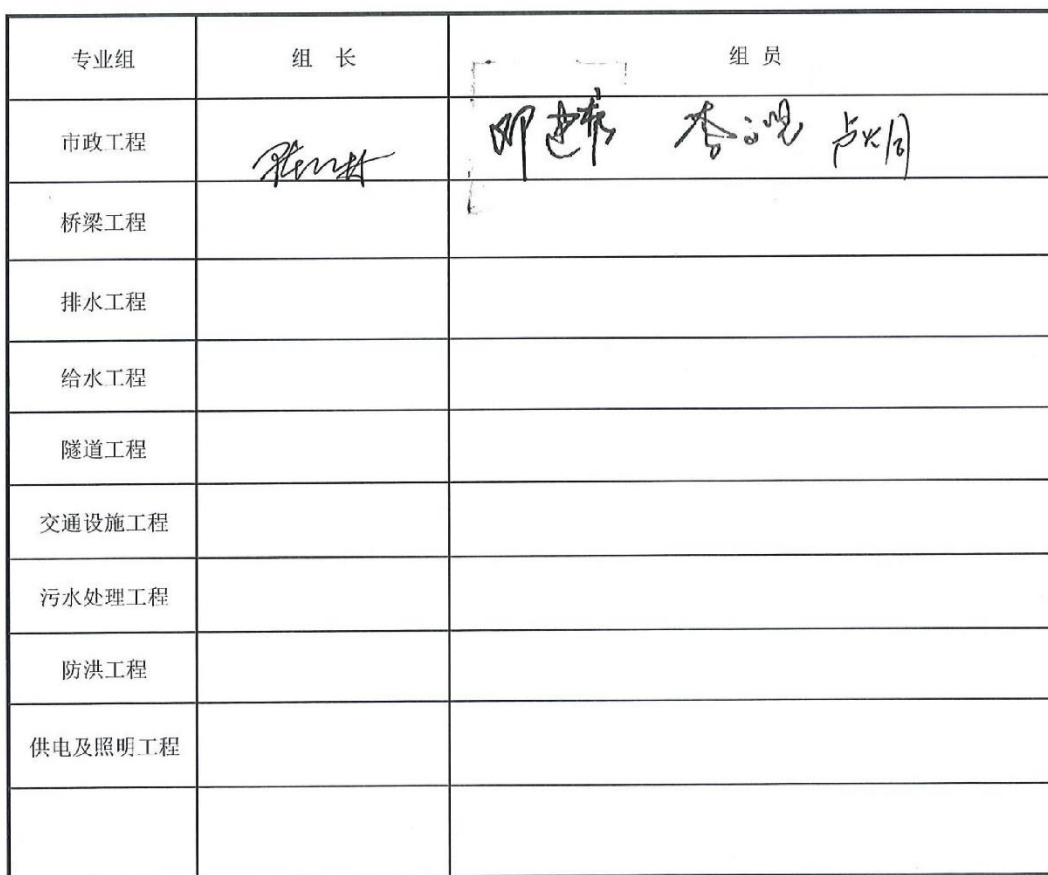 专业组 组 长 组 员
市政工程
桥梁工程
排水工程
给水工程
隧道工程
交通设施工程
污水处理工程
防洪工程
供电及照明工程